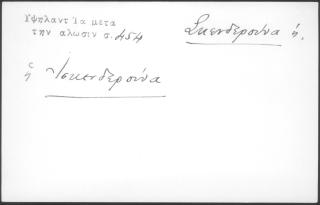 Υψηλαντ Τα μετα
την αλωσιν σ.454
Σκενδερούνα ἡ.
ἡ Ἰσκενδερούνα